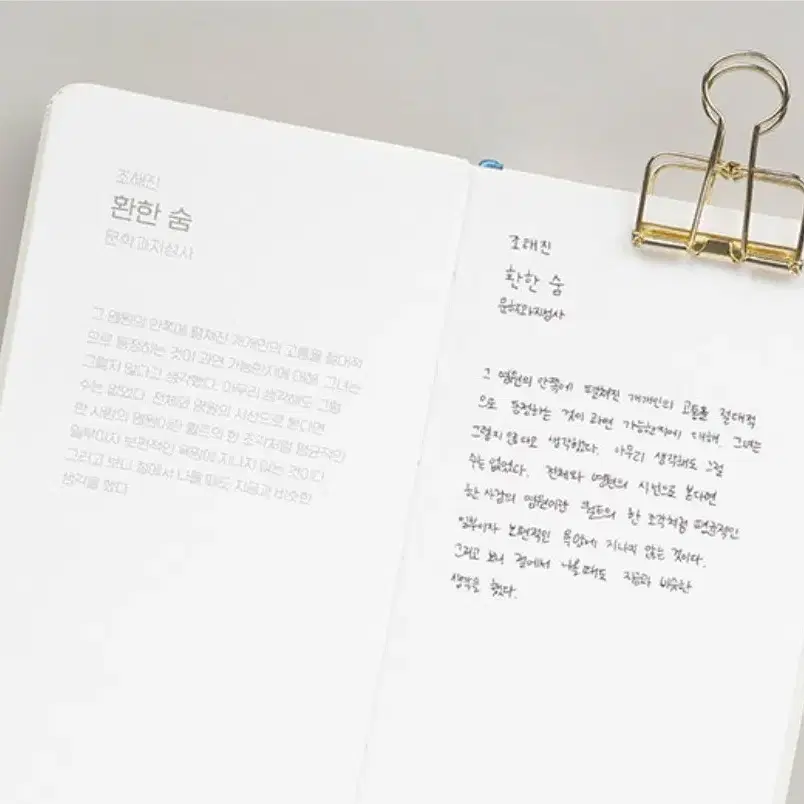 조해진
환한 숨
문학과지성사
그 영원의 안쪽에 펼쳐진 개개인의 고통을 절대적
으로 동정하는 것이 과연 가능한지에 대해. 그녀는
그렇지 않다고 생각했다. 아무리 생각해도 그럴
수는 없었다. 전체와 영원의 시선으로 본다면
한 사람의 영원이란 퀼트의 한 조각처럼 평균적인
일부이자 보편적인 욕망에 지나지 않는 것이다.
그리고 보니 절에서 나올 때도 지금과 비슷한
생각을 했다.
조해진
환한 숨
문학과지성사
그 영원의 안쪽에 펼쳐진 개개인의 고통을 절대적
으로 동정하는 것이 과연 가능한지에 대해. 그녀는
그렇지 않다고 생각했다. 아무리 생각해도 그럴
수는 없었다. 전체와 영원의 시선으로 본다면
한 사람의 영원이란 퀼트의 한 조각처럼 평균적인
일부이자 보편적인 욕망에 지나지 않는 것이다.
그리고 보니 절에서 나올 때도 지금과 비슷한
생각을 했다.